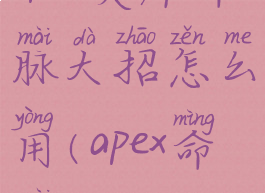 mài dà zhāo zěn me
脉大招怎么
yòng mìng
用(apex命